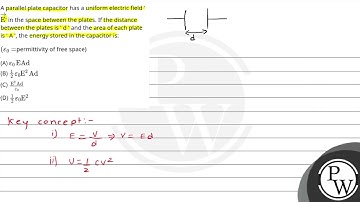 A parallel plate capacitor has a uniform electric field '
E⃗' in the space between the plates. If the distance
between the plates is ' d ' and the area of each plate
is ' A ', the energy stored in the capacitor is:
(ε₀ = permittivity of free space)
(A) ε₀ EAd
(B) ½ ε₀E² Ad
(C) E²Ad/ε₀
(D) ½ ε₀E²
d
Key concept:-
i) E = V/d ⇒ V = Ed
ii) U = 1/2 CV²
PW